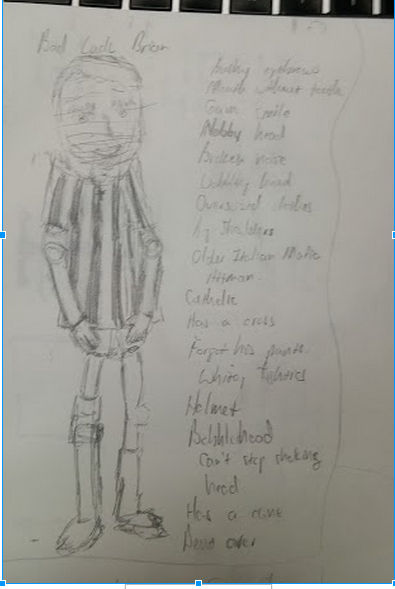 Bad Luck Brian
bushy eyebrows
Mouth without teeth
Gum smile
Nobby head
Broken nose
Wobbly head
Oversized clothes
Older Italian Mafia
Catholic
Has a cross
Forgot his pants.
Whitey tighties
Helmet
Bobblehead
Can't stop shaking
head
Has a
over